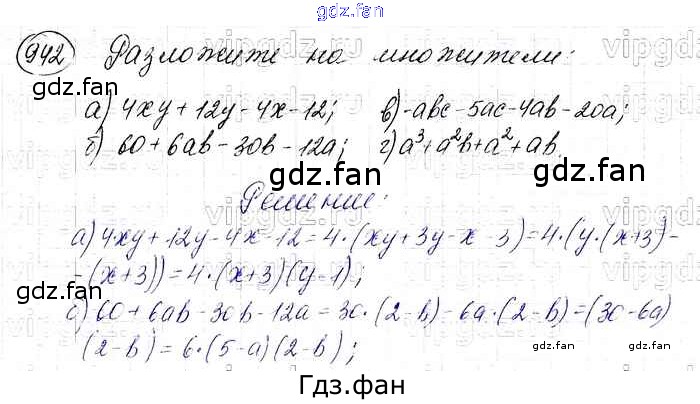 gdz.fan
942 Разложите на множители:
а) 4xy + 12y - 4x - 12; в) -abc - 5ac - 4ab - 20a;
б) 60 + 6ab - 30b - 12a; г) a³ + a²b + a² + ab.
Решение:
а) 4xy + 12y - 4x - 12 = 4·(xy + 3y - x - 3) = 4·(y·(x+3) -
- (x+3)) = 4·(x+3)(y-1);
б) 60 + 6ab - 30b - 12a = 30·(2-b) - 6a·(2-b) = (30-6a)
(2-b) = 6·(5-a)(2-b);
gdz.fan gdz.fan
gdz.fan gdz.fan
gdz.fan gdz.fan
gdz.fan gdz.fan
Гдз.фан